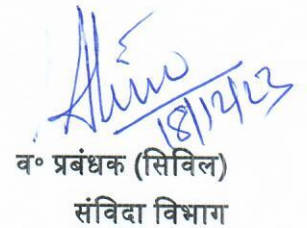 18/12/23
व॰ प्रबंधक (सिविल)
संविदा विभाग